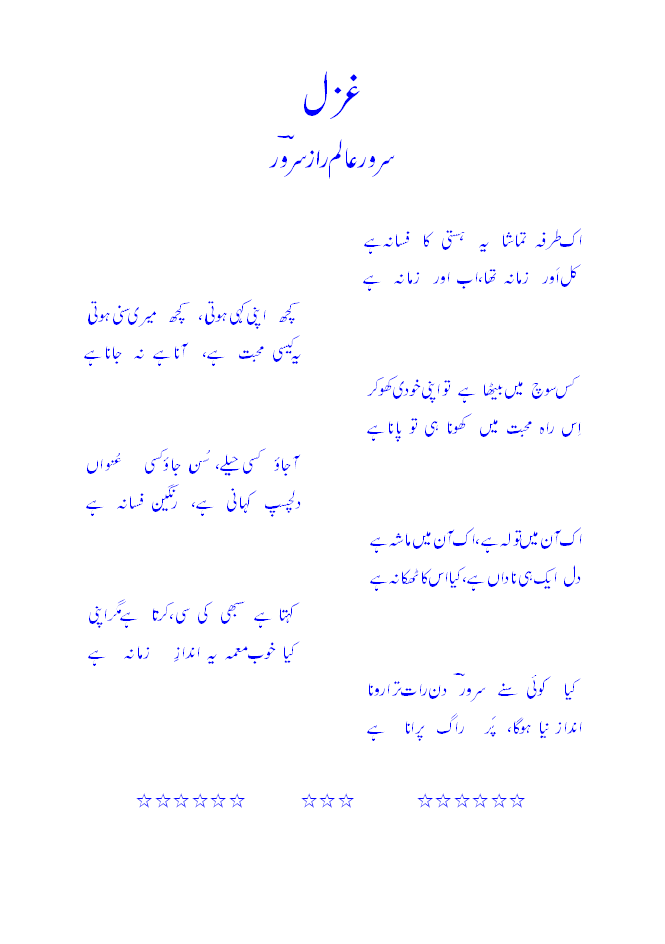 غزل
سرور عالم راز سرورؔ
اک طرفہ تماشا یہ ہستی کا فسانہ ہے
کل اَور زمانہ تھا، اب اور زمانہ ہے
کچھ اپنی کہی ہوتی، کچھ میری سنی ہوتی
یہ کیسی محبت ہے، آنا ہے نہ جانا ہے
کس سوچ میں بیٹھا ہے تو اپنی خودی کھو کر
اِس راہ محبت میں کھونا ہی تو پانا ہے
آجاؤ کسی حیلے، سُن جاؤ کسی عُنواں
دلچسپ کہانی ہے، رنگین فسانہ ہے
اک آن میں تولہ ہے، اک آن میں ماشہ ہے
دل ایک ہی ناداں ہے، کیا اس کا ٹھکانہ ہے
کہتا ہے سبھی کی سی، کرتا ہے مگر اپنی
کیا خوب معمہ یہ اندازِ زمانہ ہے
کیا کوئی سنے سرورؔ دن رات ترا رونا
انداز نیا ہوگا، پَر راگ پرانا ہے
☆☆☆☆☆☆ ☆☆☆ ☆☆☆☆☆☆